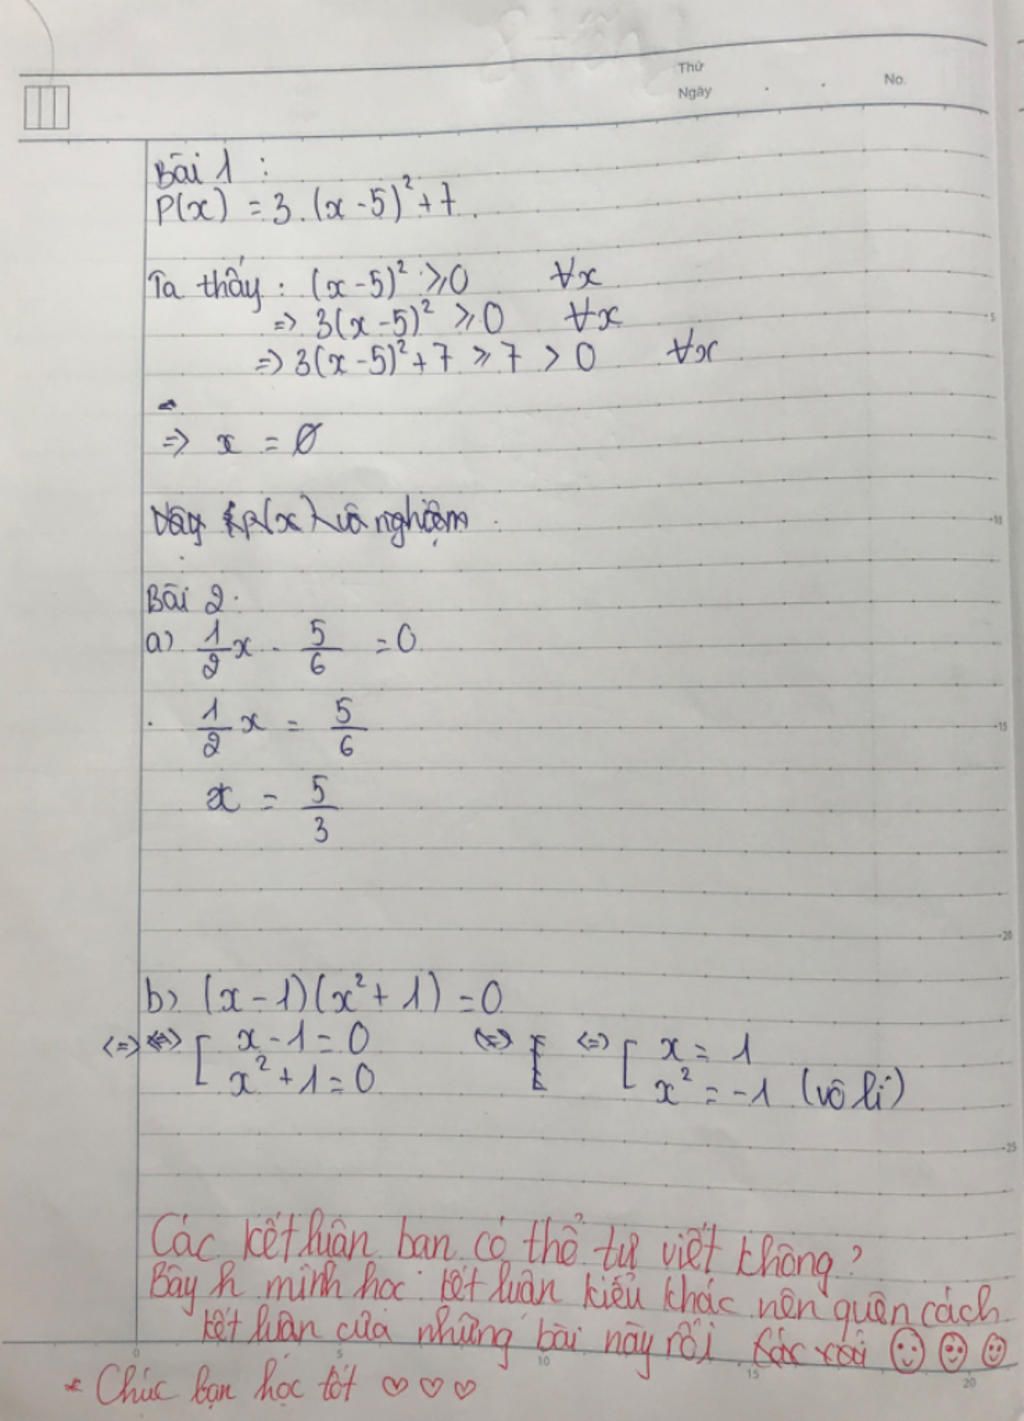 Thứ
Ngày . . No.
Bài 1 :
P(x) = 3.(x-5)² + 7.
Ta thấy : (x-5)² ≥ 0 ∀x
=> 3(x-5)² ≥ 0 ∀x
=> 3(x-5)² + 7 ≥ 7 > 0 ∀x
=> x = ∅
Vậy P(x) vô nghiệm
Bài 2.
a) 1/2 x - 5/6 = 0
1/2 x = 5/6
x = 5/3
b) (x-1)(x²+1) = 0
<=> [ x-1 = 0 <=> [ x = 1
x²+1 = 0 x² = -1 (vô lí)
Các kết luận bạn có thể tự viết không?
Bây h mình học kết luận kiểu khác nên quên cách
kết luận của những bài này rồi
* Chúc bạn học tốt ♡♡♡
5
10
15
20
25
0 5 10 15 20